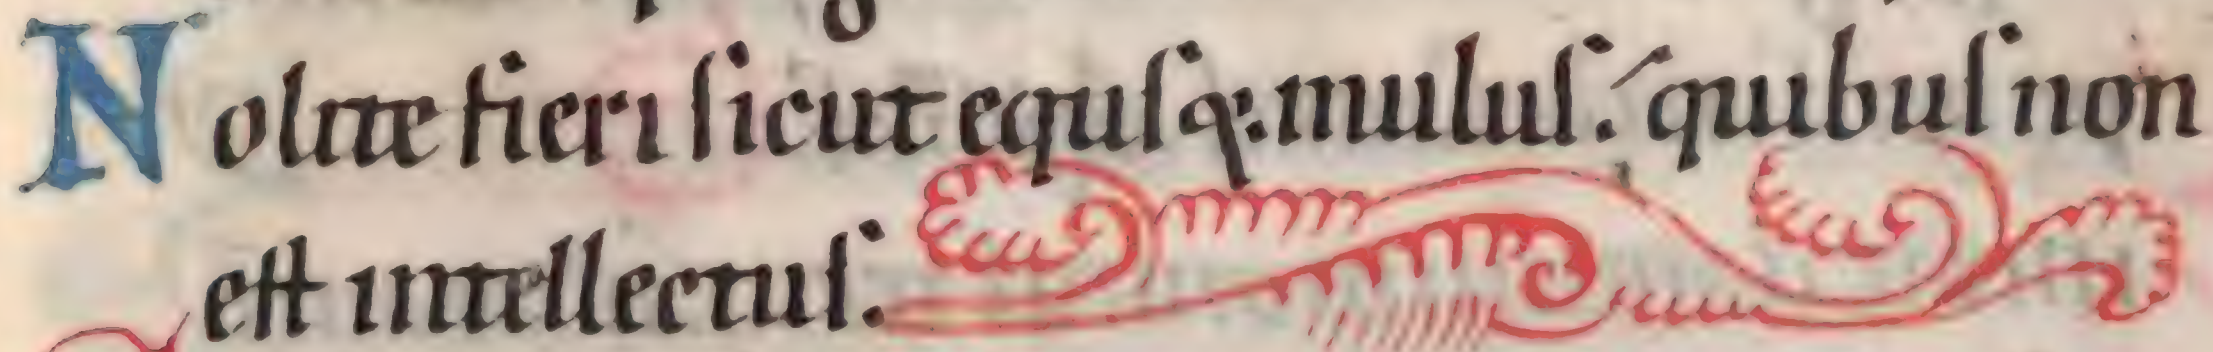 Nolite fieri sicut equus q; mulus: quibus non
est intellectus.